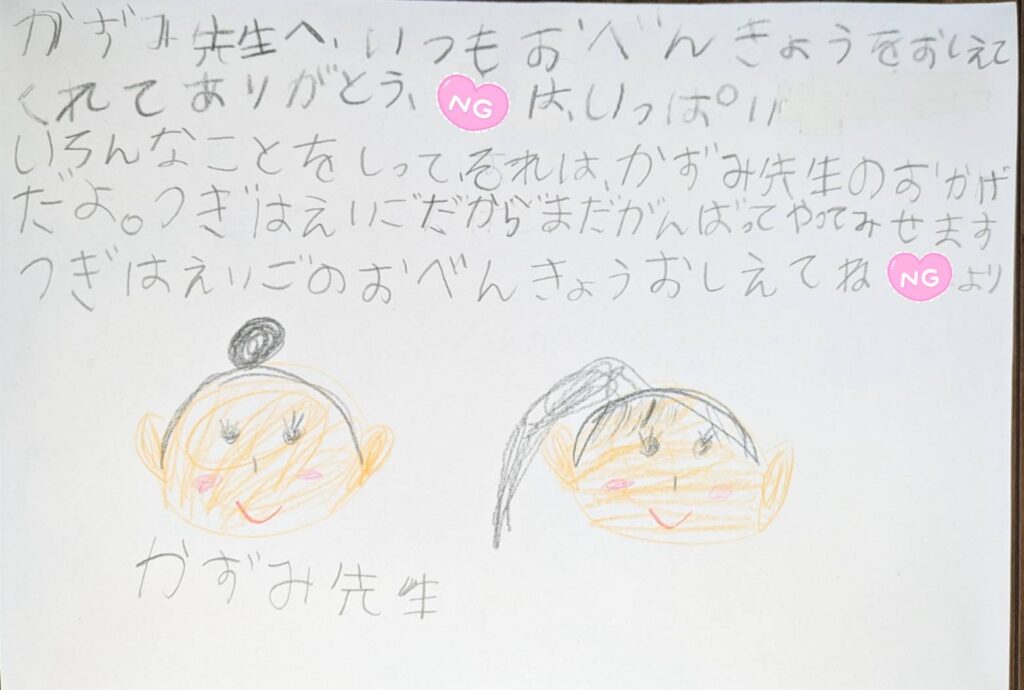 かずみ先生へ、いつもおべんきょうをおしえて
くれてありがとう、NGは、いっぱい
いろんなことをしって、それは、かずみ先生のおかげ
だよ。つぎはえいごだからまだがんばってやってみせます
つぎはえいごのおべんきょうおしえてねNGより
かずみ先生